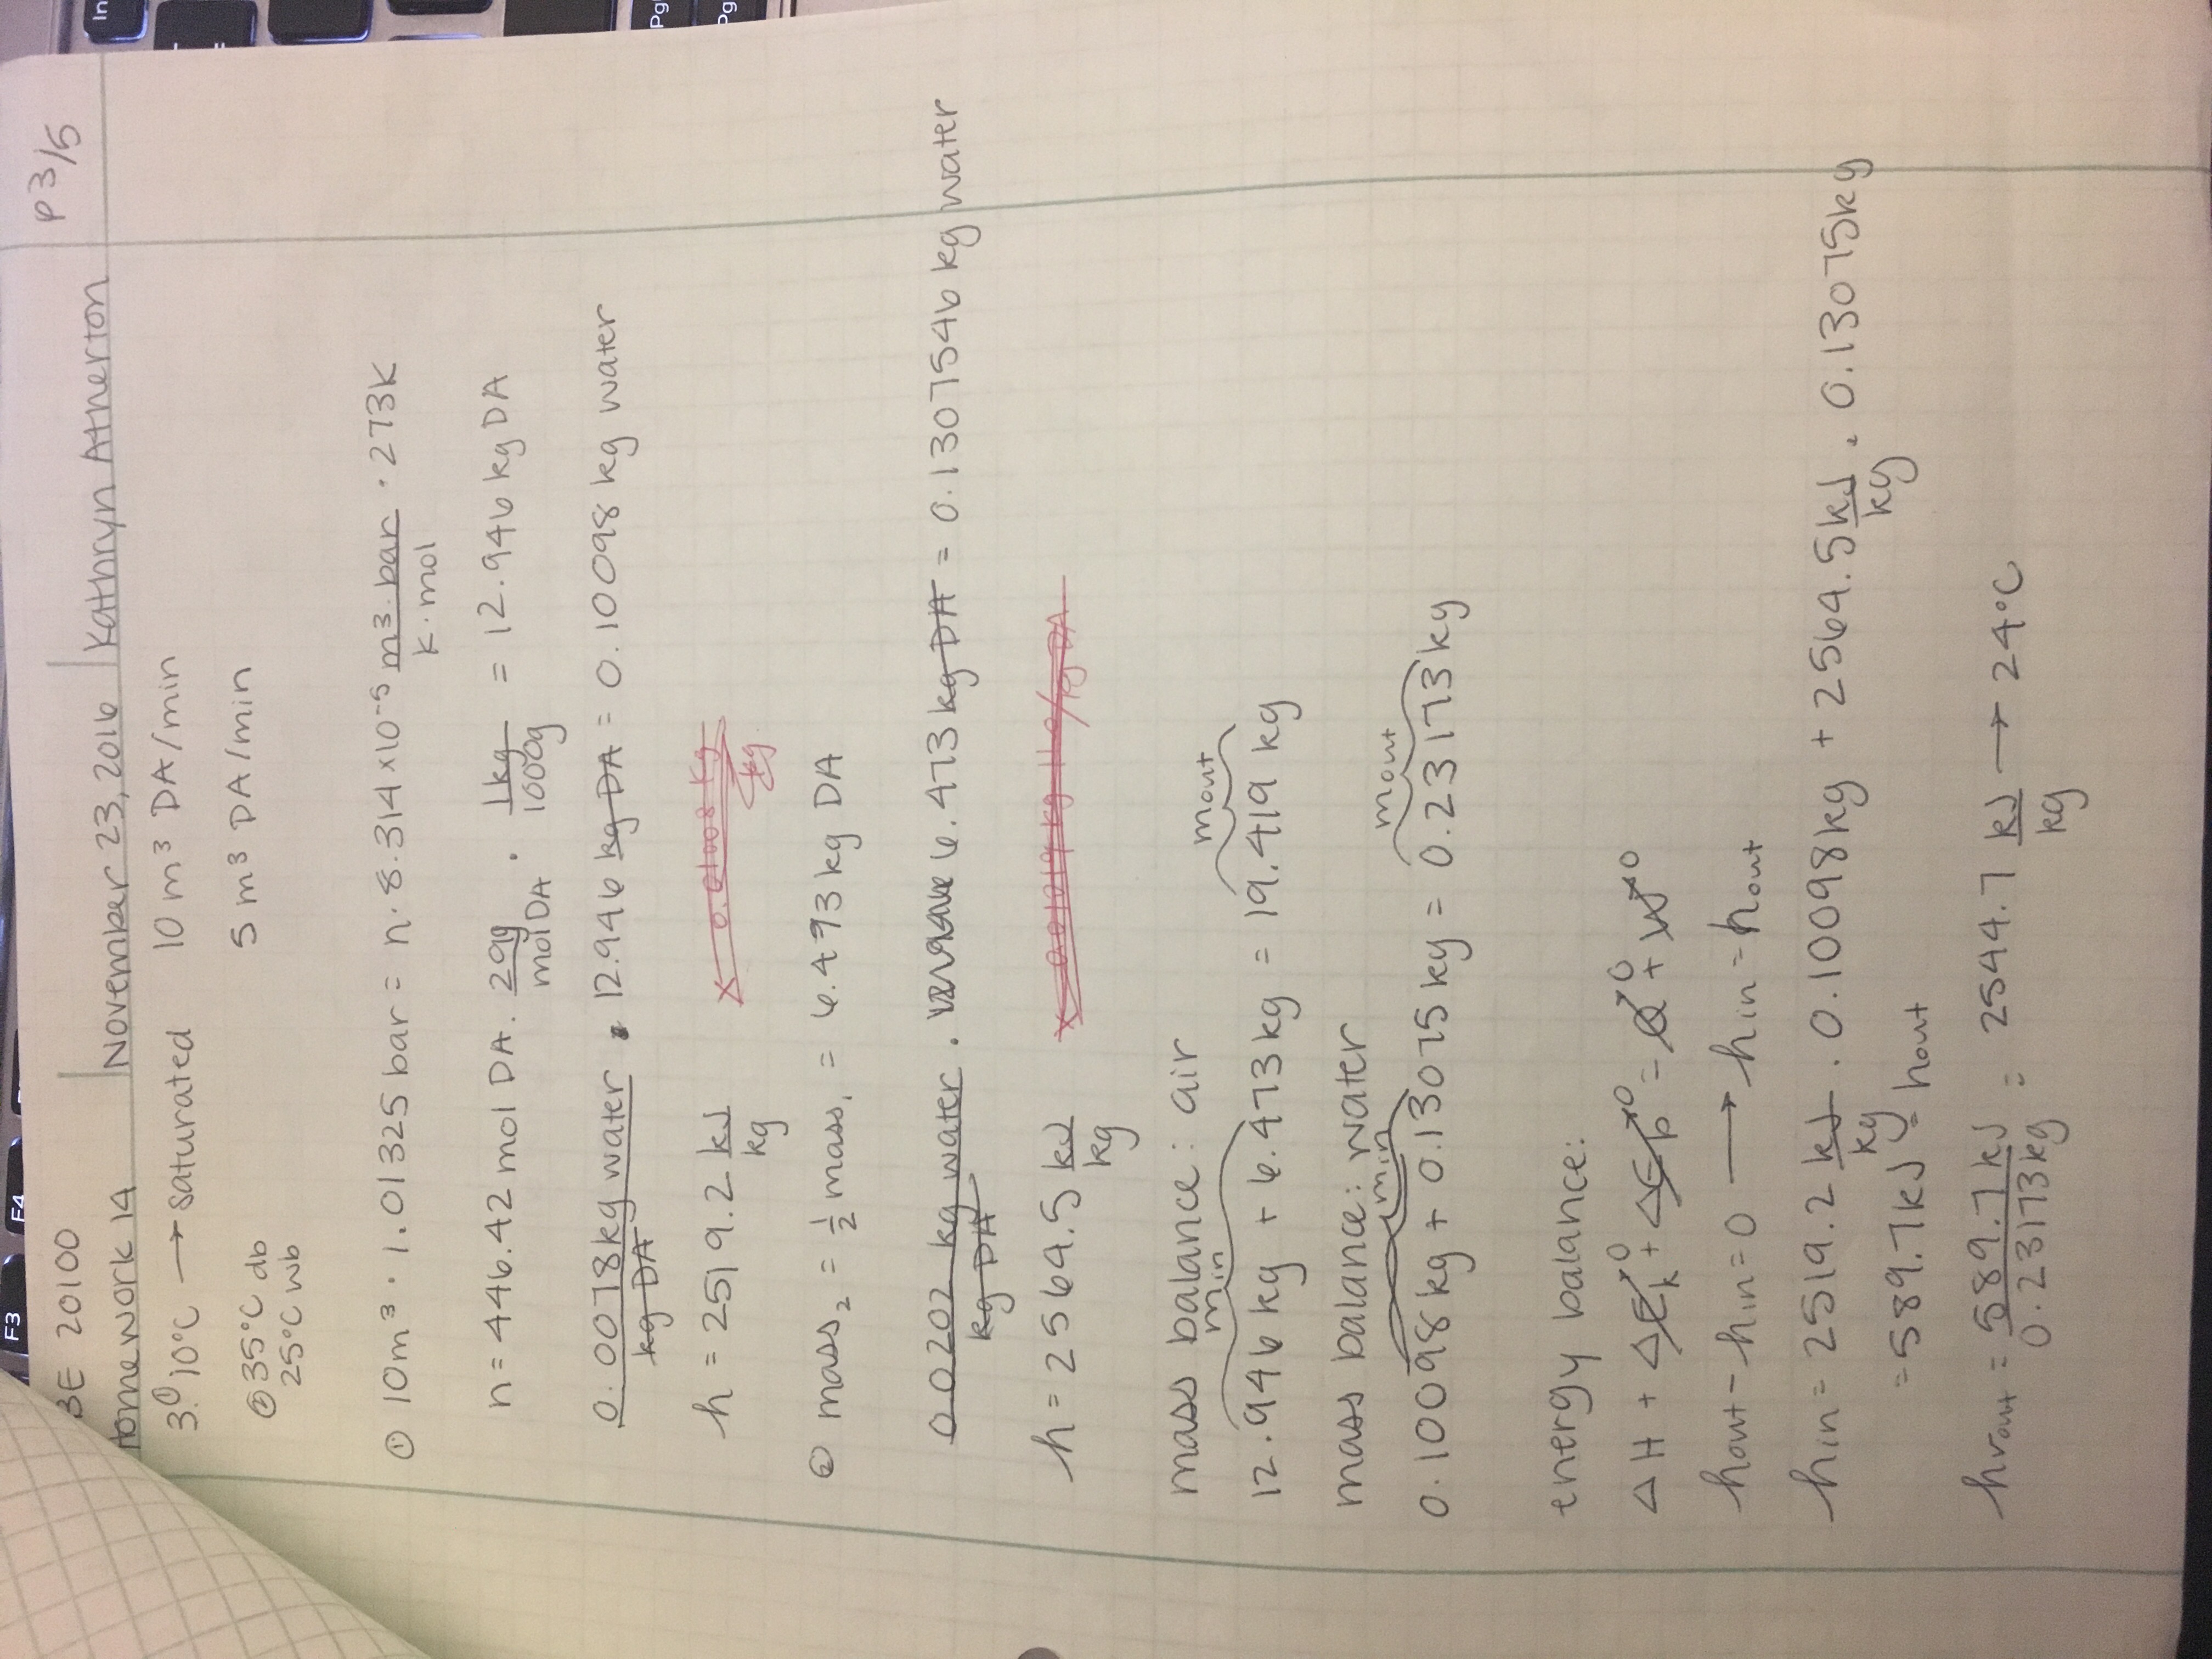 F3
F4
In
Pg
Pg
P 3/5
BE 20100
Homework 14
November 23, 2016
Kathryn Atherton
3. ① 10°C → saturated 10 m³ DA/min
② 35°C db 5 m³ DA/min
25°C wb
① 10m³ · 1.01325 bar = n · 8.314 x10⁻⁵ m³·bar/K·mol · 273K
n = 446.42 mol DA · 29g/mol DA · 1kg/1000g = 12.946 kg DA
0.0078kg water/kg DA · 12.946 kg DA = 0.10098 kg water
h = 2519.2 kJ/kg x 0.01008 kg/kg
② mass₂ = ½ mass₁ = 6.473 kg DA
0.0202 kg water/kg DA · 6.473 kg DA = 0.1307546 kg water
h = 2564.5 kJ/kg
mass balance: air
min mout
12.946 kg + 6.473 kg = 19.419 kg
mass balance: water
min mout
0.10098 kg + 0.13075 kg = 0.23173 kg
energy balance:
ΔH + ΔEk⁰ + ΔEp⁰ = Q⁰ + W⁰
hout - hin = 0 → hin = hout
hin = 2519.2 kJ/kg · 0.10098kg + 2564.5 kJ/kg · 0.13075kg
= 589.7 kJ = hout
hvout = 589.7 kJ/0.23173kg = 2544.7 kJ/kg → 24°C